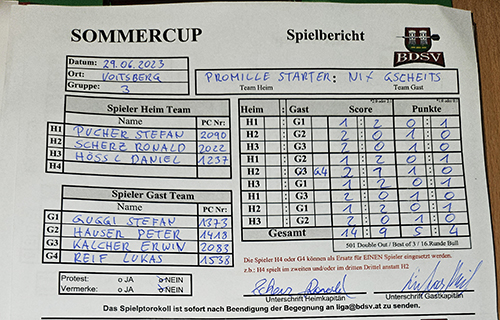 SOMMERCUP
Spielbericht
BDSV
Datum: 29.06.2023
Ort: VOITSBERG
Gruppe: 3
PROMILLE STARTER : NIX GSCHEITS
Team Heim Team Gast
Spieler Heim Team
Name PC Nr:
H1 PUCHER STEFAN 2090
H2 SCHERZ RONALD 2022
H3 HÖSSL DANIEL 1237
H4
Spieler Gast Team
Name PC Nr:
G1 GUGGI STEFAN 1373
G2 HAUSER PETER 1418
G3 KALCHER ERWIN 2083
G4 REIF LUKAS 1538
Protest: o JA o NEIN
Vermerke: o JA o NEIN
Heim : Gast Score Punkte
H1 : G1 1 : 2 0 : 1
H2 : G2 2 : 0 1 : 0
H3 : G3 2 : 0 1 : 0
H1 : G2 1 : 2 0 : 1
H2 : G3 G4 2 : 1 1 : 0
H3 : G1 1 : 2 0 : 1
H2 : G1 1 : 2 0 : 1
H1 : G3 2 : 0 1 : 0
H3 : G2 2 : 0 1 : 0
Gesamt 14 : 9 5 : 4
501 Double Out / Best of 3 / 16.Runde Bull
Die Spieler H4 oder G4 können als Ersatz für EINEN Spieler eingesetzt werden.
z.b.: H4 spielt im zweiten und/oder im dritten Drittel anstatt H2
Unterschrift Heimkapitän Unterschrift Gastkapitän
Das Spielptorokoll ist sofort nach Beendigung der Begegnung an liga@bdsv.at zu senden.